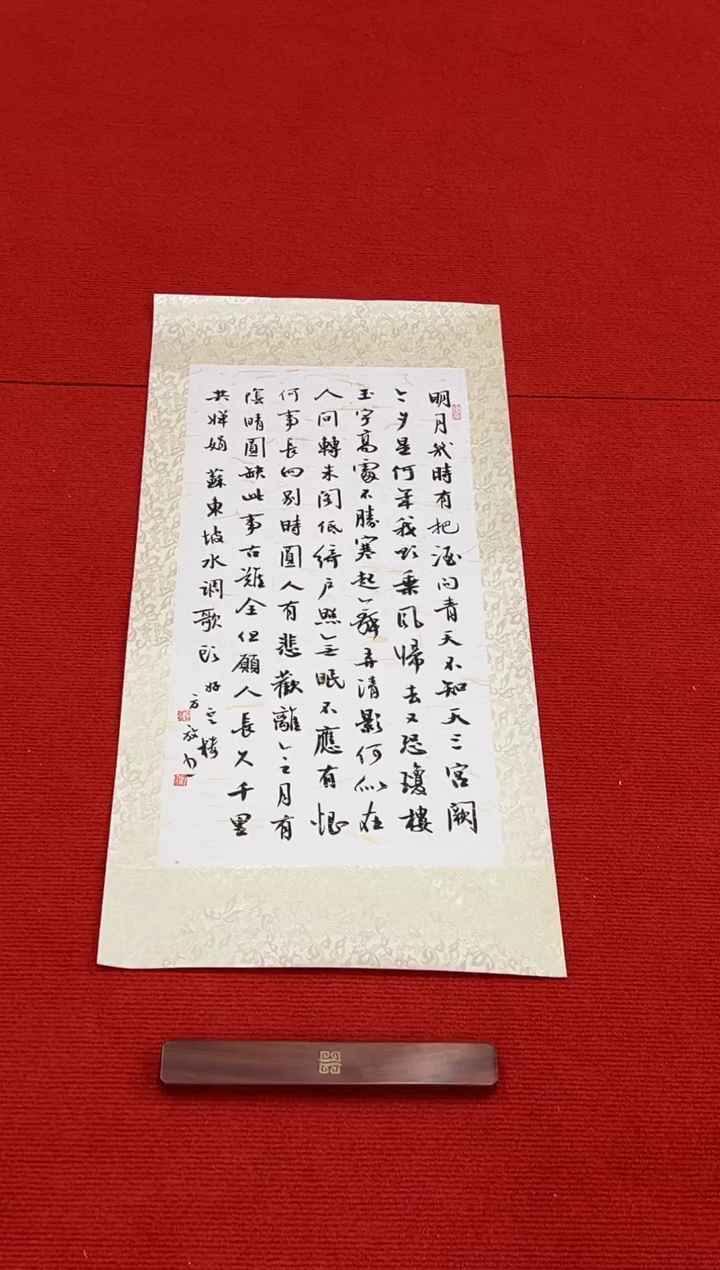 明月幾時有把酒問青天不知天上宮闕
今夕是何年我欲乘風歸去又恐瓊樓
玉宇高處不勝寒起舞弄清影何似在
人間轉朱閣低綺戶照無眠不應有恨
何事長向別時圓人有悲歡離合月有
陰晴圓缺此事古難全但願人長久千里
共嬋娟 蘇東坡水调歌頭 好雲樓